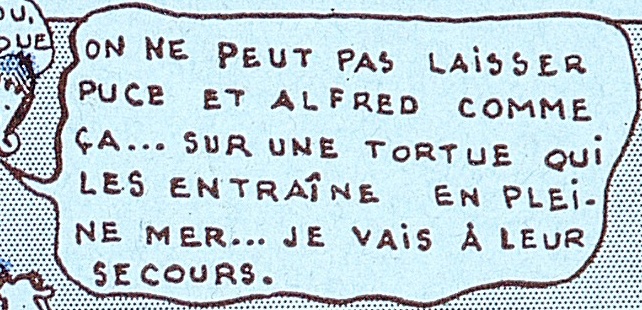 OU,
QUE
ON NE PEUT PAS LAISSER
PUCE ET ALFRED COMME
ÇA... SUR UNE TORTUE QUI
LES ENTRAÎNE EN PLEI-
NE MER... JE VAIS À LEUR
SECOURS.